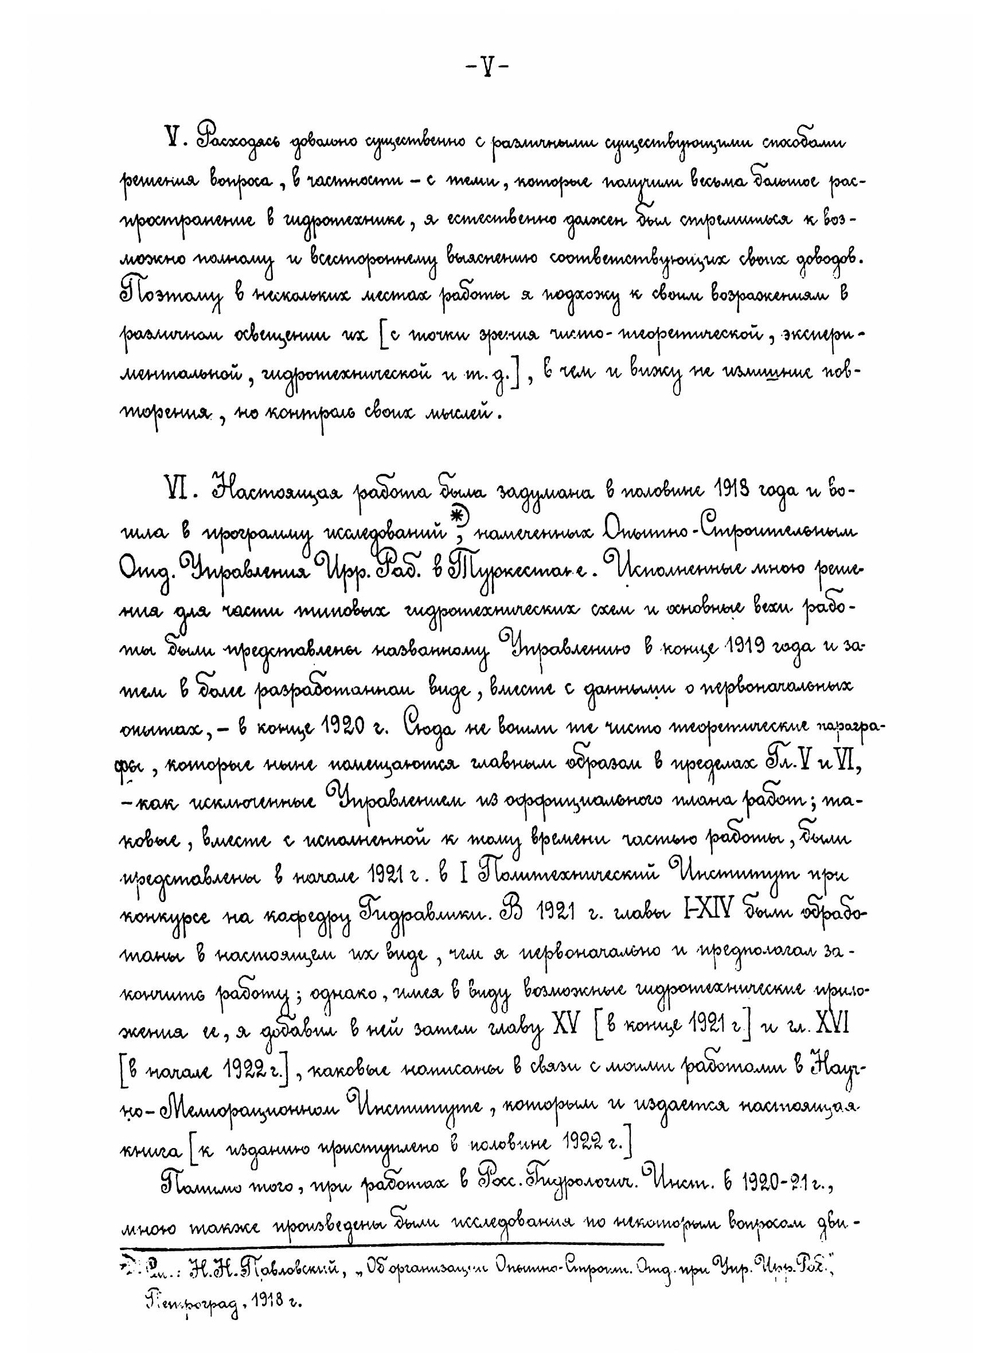 -V-
V. Расходясь довольно существенно с различными существующими способами
решения вопроса, в частности – с теми, которые получили весьма большое рас-
пространение в гидротехнике, я естественно должен был стремиться к воз-
можно полному и всестороннему выяснению соответствующих своих доводов.
Поэтому в нескольких местах работы я подхожу к своим возражениям в
различном освещении их [с точки зрения чисто-теоретической, экспери-
ментальной, гидротехнической и т.д.], в чем и вижу не излишние пов-
торения, но контроль своих мыслей.
VI. Настоящая работа была задумана в половине 1918 года и во-
шла в программу исследований *), намеченных Опытно-Строительным
Отд. Управления Ирр. Раб. в Туркестане. Исполненные мною реше-
ния для части типовых гидротехнических схем и основные вехи рабо-
ты были представлены названному Управлению в конце 1919 года и за-
тем в более разработанном виде, вместе с данными о первоначальных
опытах, – в конце 1920 г. Сюда не вошли те чисто теоретические парагра-
фы, которые ныне помещаются главным образом в пределах Гл. V и VI,
– как исключенные Управлением из оффициального плана работ; та-
ковые, вместе с исполненной к тому времени частью работы, были
представлены в начале 1921 г. в I Политехнический Институт при
конкурсе на кафедру Гидравлики. В 1921 г. главы I-XIV были обрабо-
таны в настоящем их виде, чем я первоначально и предполагал за-
кончить работу; однако, имея в виду возможные гидротехнические прило-
жения ее, я добавил в ней затем главу XV [в конце 1921 г.] и гл. XVI
[в начале 1922 г.], каковые написаны в связи с моими работами в Науч-
но-Мелиорационном Институте, которым и издается настоящая
книга [к изданию приступлено в половине 1922 г.]
Помимо того, при работах в Росс. Гидрологич. Инст. в 1920-21 г.,
мною также произведены были исследования по некоторым вопросам дви-
*) См.: Н.Н. Павловский, „Об организации Опытно-Строит. Отд. при Упр. Ирр. Раб.",
Петроград, 1918 г.